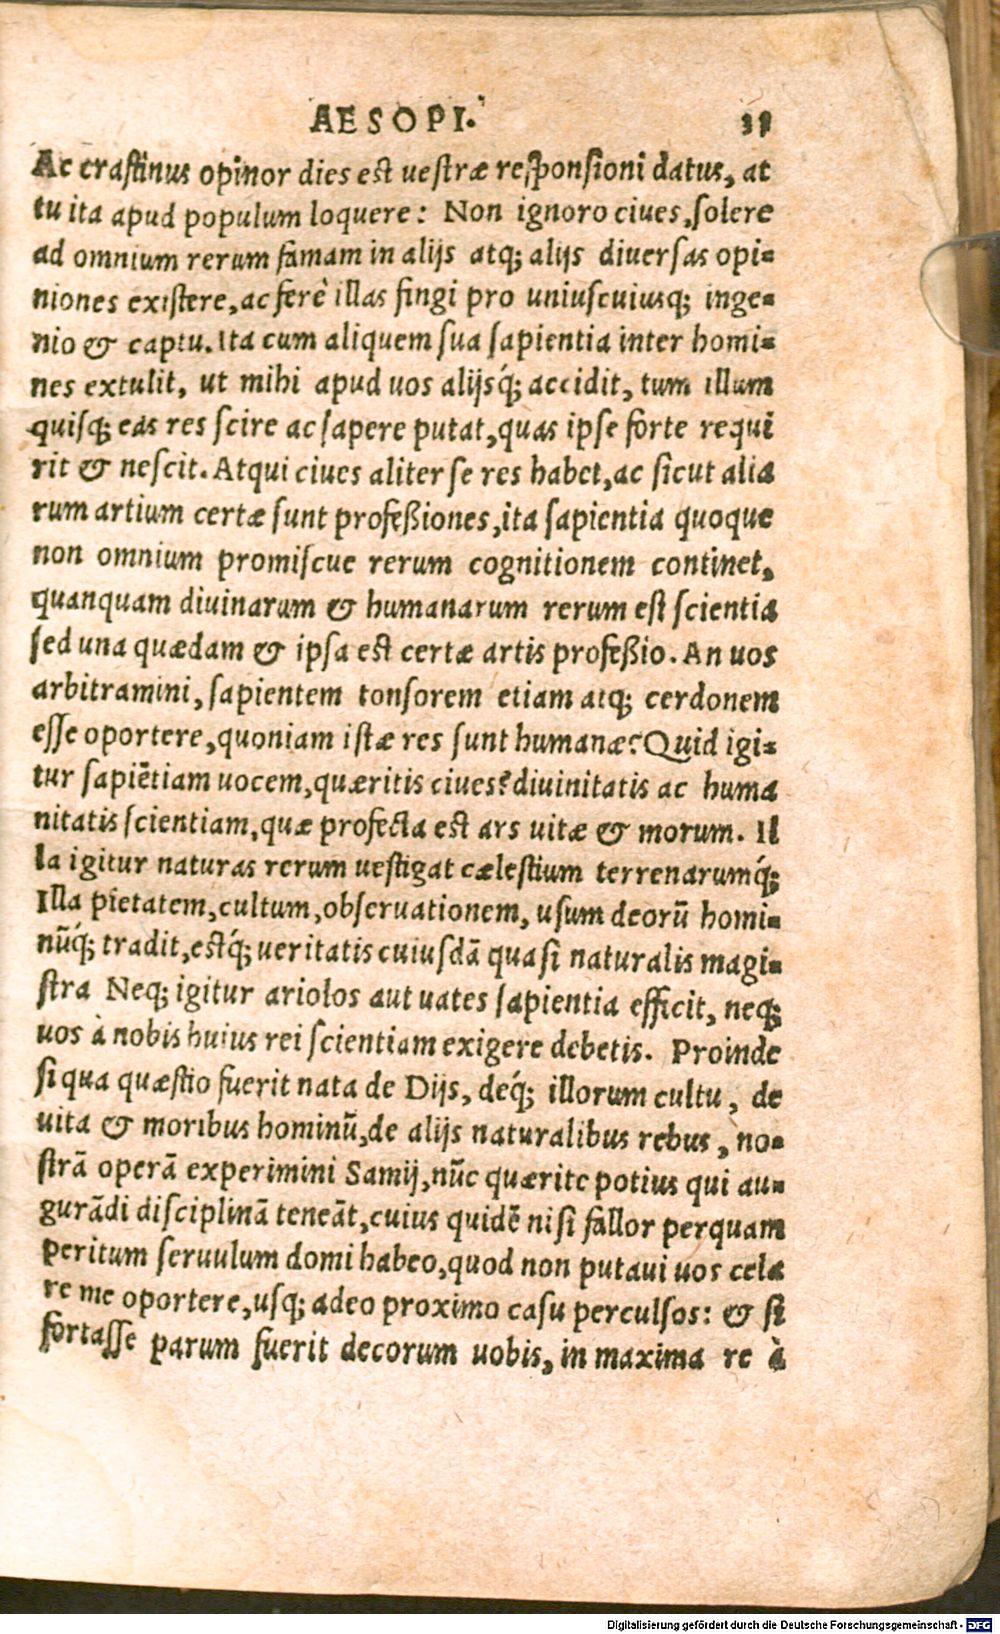 AESOPI.
Ac crastinus opinor dies est uestræ responsioni datus, at
tu ita apud populum loquere: Non ignoro ciues, solere
ad omnium rerum famam in alijs atq; alijs diuersas opi-
niones existere, ac ferè illas fingi pro uniuscuiusq; inge-
nio & captu. Ita cum aliquem sua sapientia inter homi-
nes extulit, ut mihi apud uos alijsq́; accidit, tum illum
quisq; eas res scire ac sapere putat, quas ipse forte requi
rit & nescit. Atqui ciues aliter se res habet, ac sicut alia
rum artium certæ sunt profeßiones, ita sapientia quoque
non omnium promiscue rerum cognitionem continet,
quanquam diuinarum & humanarum rerum est scientia
sed una quædam & ipsa est certæ artis profeßio. An uos
arbitramini, sapientem tonsorem etiam atq; cerdonem
esse oportere, quoniam istæ res sunt humanæ? Quid igi-
tur sapiẽtiam uocem, quæritis ciues? diuinitatis ac huma
nitatis scientiam, quæ profecta est ars uitæ & morum. Il
la igitur naturas rerum uestigat cælestium terrenarumq́;
Illa pietatem, cultum, obseruationem, usum deorũ homi-
nũq́; tradit, estq́; ueritatis cuiusdã quasi naturalis magi-
stra Neq; igitur ariolos aut uates sapientia efficit, neq;
uos à nobis huius rei scientiam exigere debetis. Proinde
si qua quæstio fuerit nata de Dijs, deq́; illorum cultu, de
uita & moribus hominũ, de alijs naturalibus rebus, no-
strã operã experimini Samij, nũc quærite potius qui au-
gurãdi disciplinã teneãt, cuius quidẽ nisi fallor perquam
peritum seruulum domi habeo, quod non putaui uos cela
re me oportere, usq; adeo proximo casu perculsos: & si
fortasse parum fuerit decorum uobis, in maxima re à
Digitalisierung gefördert durch die Deutsche Forschungsgemeinschaft - DFG